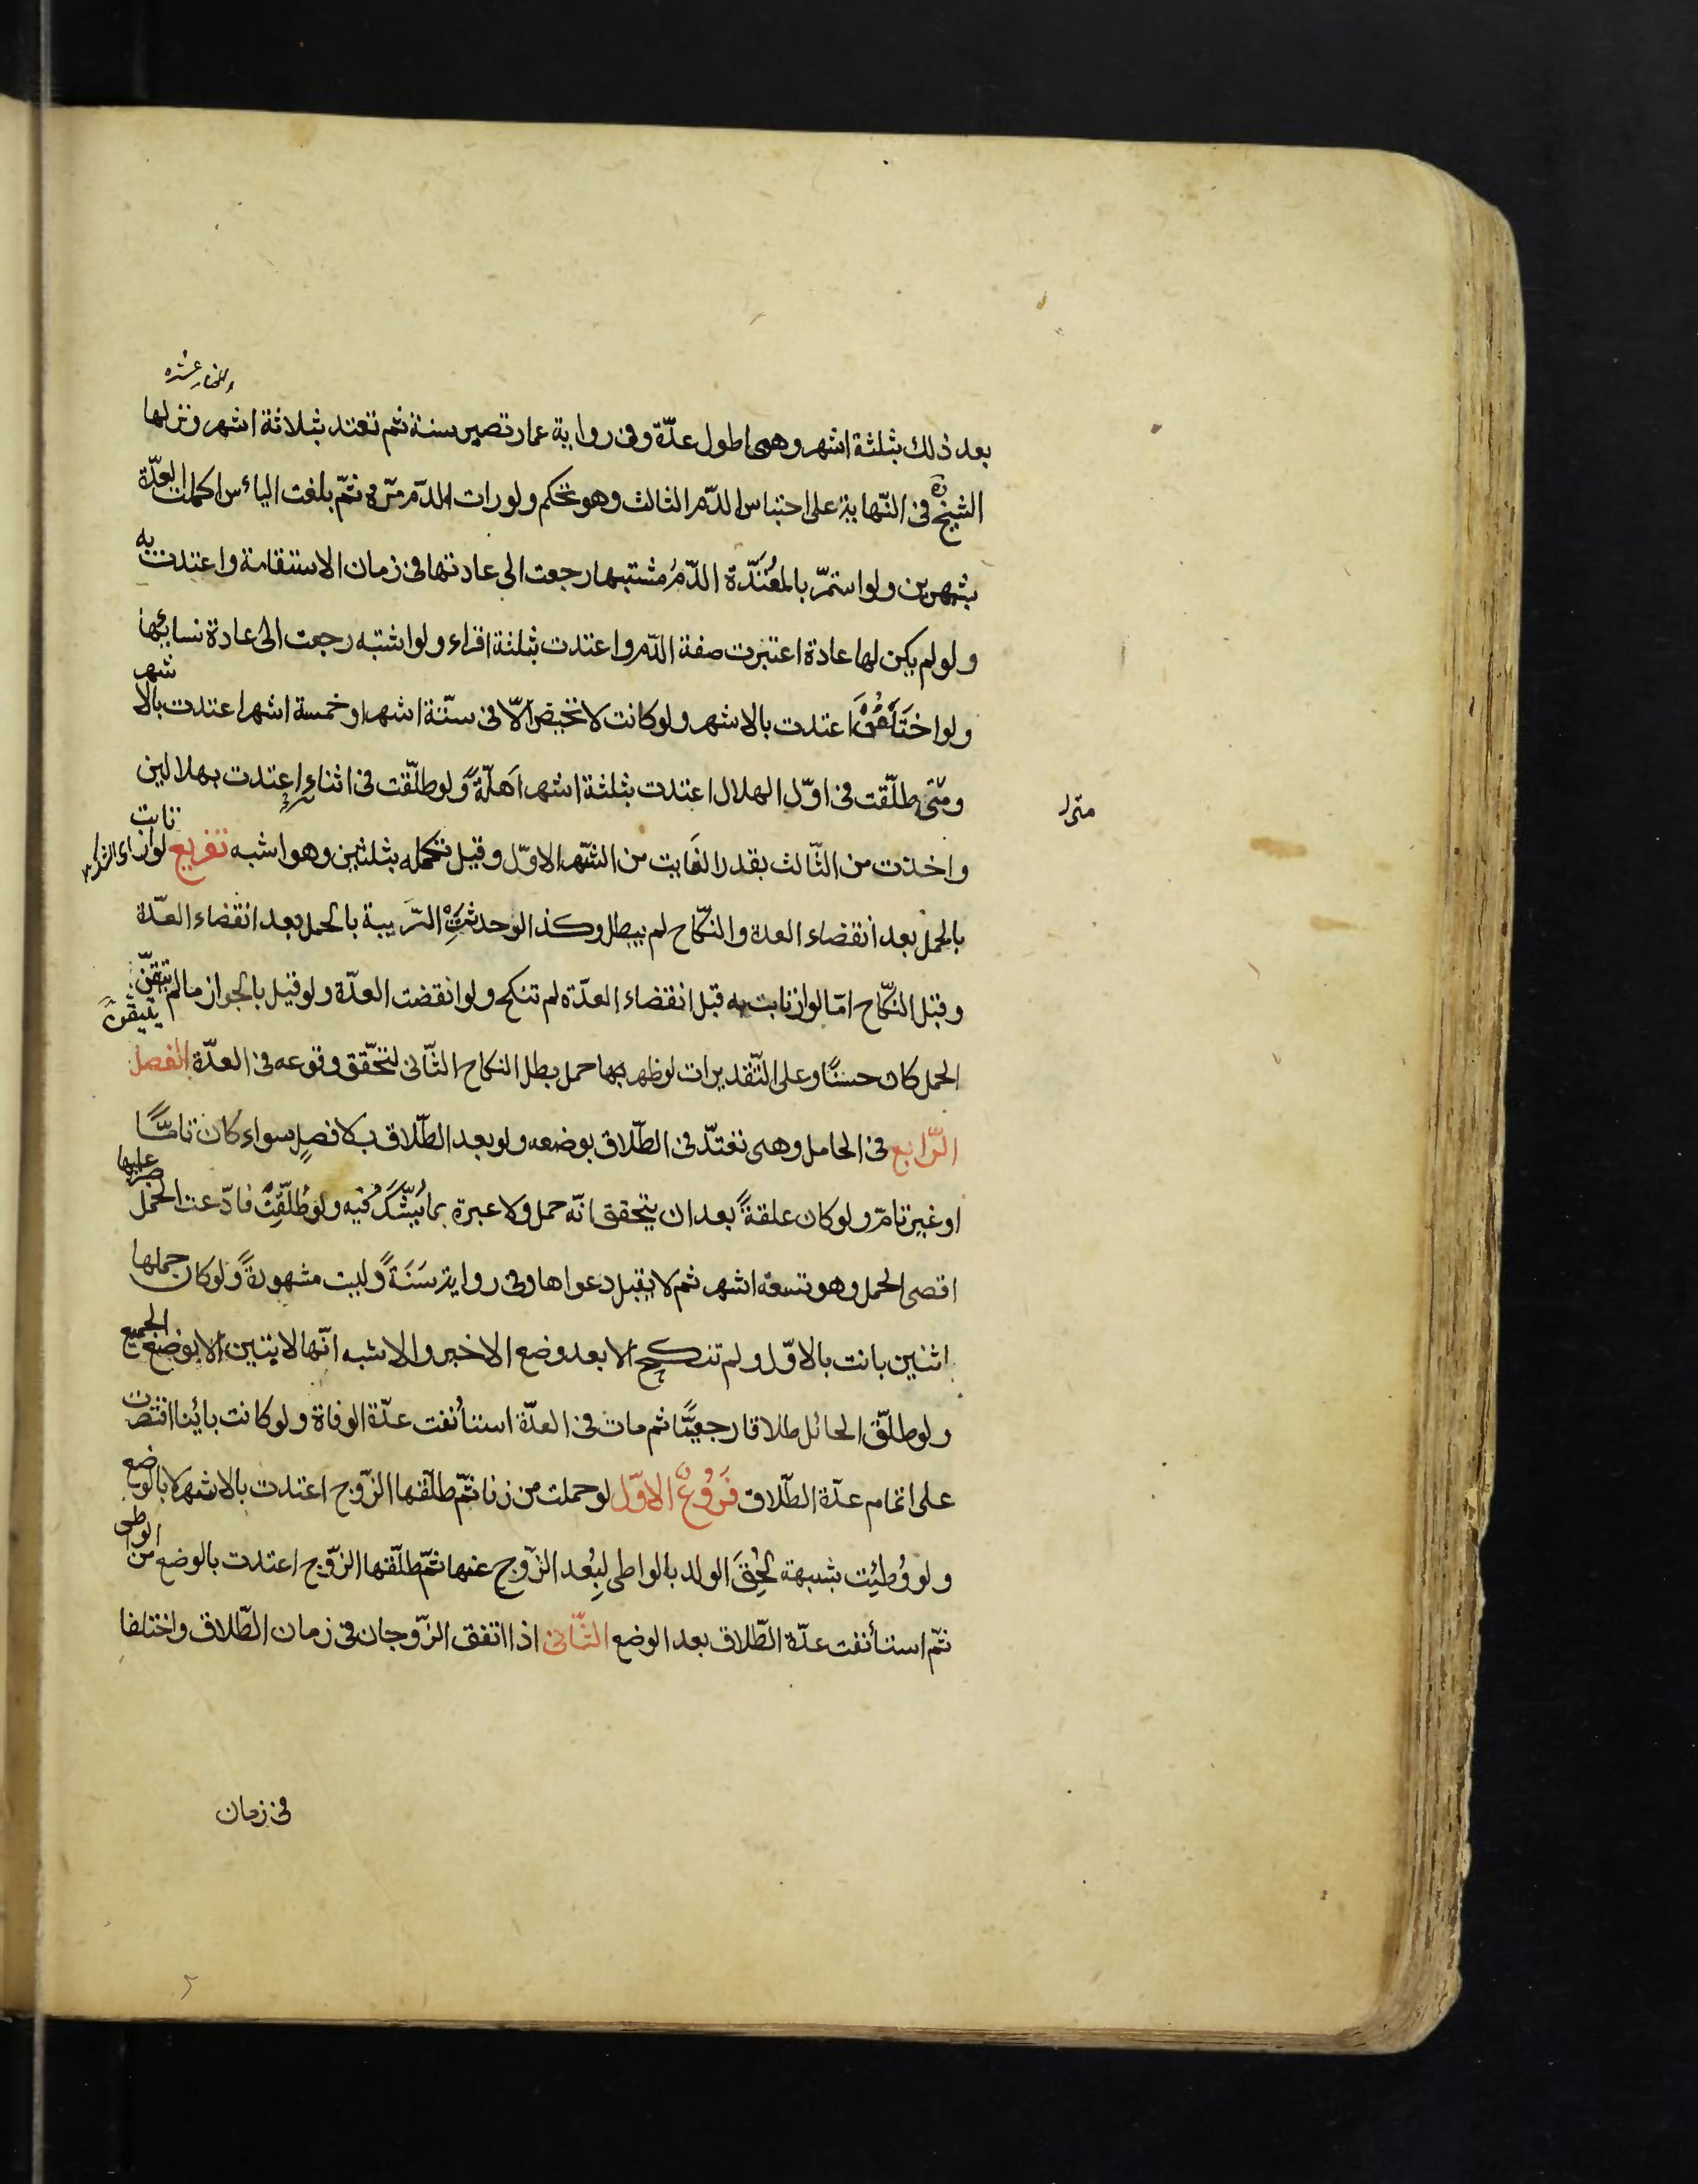 بعد ذلك بثلثة اشهر وهى اطول عدّة وفى رواية عمار تصبر سنة ثم تعتد بثلاثة اشهر ونزلها
الشيخ ره فى النّهاية على احتباس الدّم الثالث وهو تحكم ولو رات الدّم مرّة ثمّ بلغت اليأس اكملت العدّة
بشهرين ولو استمرّ بالمعتدّة الدّم مشتبها رجعت الى عادتها فى زمان الاستقامة واعتدت به
ولو لم يكن لها عادة اعتبرت صفة الدّم واعتدت بثلثة اقراء ولو اشتبه رجعت الى عادة نسائها
ولو اختَلَفْنَ اعتدت بالاشهر ولو كانت لا تحيض الّا فى ستّة اشهر او خمسة اشهر اعتدت بالاشهر
ومتى طلّقت فى اوّل الهلال اعتدت بثلثة اشهر اَهلّةً ولو طلّقت فى اثنائه اعتدت بهلالين
واخذت من الثّالث بقدر الفايت من الشّهر الاوّل وقيل تكمله بثلثين وهو اشبه تفريع لو ارتابت
بالحمل بعد انقضاء العدة والنّكاح لم يبطل وكذا لو حدثَتِ الرّيبة بالحمل بعد انقضاء العدّة
وقبل النّكاح امّا لو ارتابت به قبل انقضاء العدّة لم تنكح ولو انقضت العدّة ولو قيل بالجواز ما لم يتيقّن
الحمل كان حسنًا وعلى التّقديرات لو ظهر بها حمل بطل النكاح الثّانى لتحقّق وقوعه فى العدّة الفصل
الرّابع فى الحامل وهى تعتدّ فى الطّلاق بوضعه ولو بعد الطّلاق بلا فصلٍ سواء كان تامًّا
او غير تامّ ولو كان علقةً بعد ان يتحقق انّه حمل ولا عبرة بما يُشَكُّ فيه ولو طُلّقت فادّعت الحمل صبر عليها
اقصى الحمل وهو تسعة اشهر ثم لا يقبل دعواها وفى رواية سَنَةً وليست مشهورةً ولو كان حملها
اثنين بانت بالاوّل ولم تنكح الا بعد وضع الاخير والاشبه انّها لا تبين الا بوضع الجميع
ولو طلّق الحائل طلاقا رجعيًّا ثم مات فى العدّة استأنفت عدّة الوفاة ولو كانت بائنا اقتصرت
على اتمام عدّة الطّلاق فروعٌ الاوّل لو حملت من زنا ثمّ طلّقها الزّوج اعتدت بالاشهر لا بالوضع
ولو وُطئت بشبهة لُحِقَ الولد بالواطى لبُعد الزّوج عنها ثمّ طلّقها الزّوج اعتدت بالوضع من الواطى
ثمّ استأنفت عدّة الطّلاق بعد الوضع الثّانى اذا اتفق الزّوجان فى زمان الطّلاق واختلفا
فى زمان